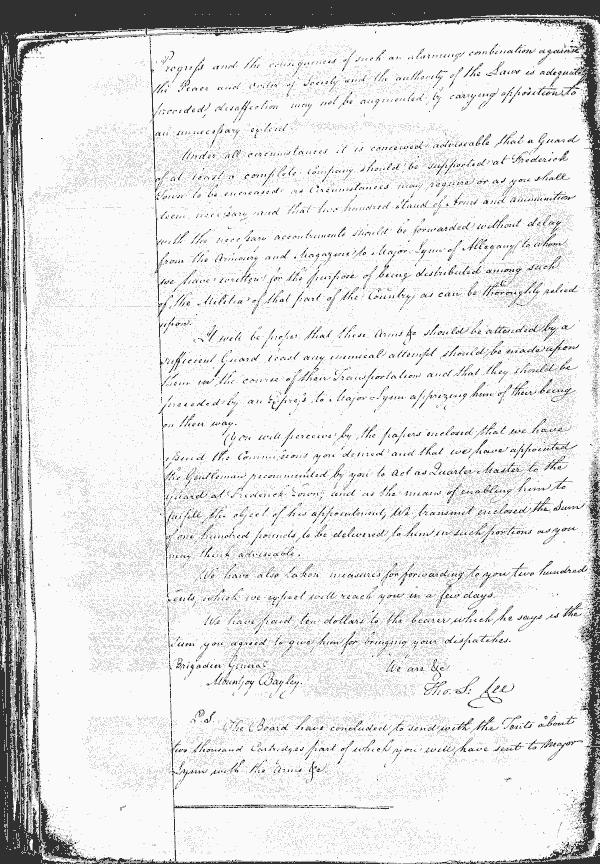 Progress and the consequences of such an alarming combination against
the Peace and order of Society and the authority of the Laws is adequate
proceeded, desaffection may not be augmented by carrying opposition to
an unnecessary extent.
Under all circumstances it is conceived adviseable that a Guard
of at least a complete Company should be supported at Frederick
Town to be increased as Circumstances may require or as you shall
deem necessary and that two hundred stand of Arms and ammunition
with the necessary accoutrements should be forwarded without delay
from the Armoury and Magazine to Major Lynn of Allegany to whom
we have written for the purpose of being distributed among such
of the Militia of that part of the Country as can be thoroughly relied
upon.
It will be proper that these Arms &c should be attended by a
sufficient Guard least any inimical attempt should be made upon
them in the course of their Transportation and that they should be
preceded by an Express to Major Lynn apprizing him of their being
on their way.
You will perceive by the papers enclosed that we have
issued the Commissions you desired and that we have appointed
the Gentleman recommended by you to act as Quarter Master to the
guard at Frederick Town, and as the means of enabling him to
fulfill the object of his appointment, We transmit enclosed the Sum
of one hundred pounds to be delivered to him in such portions as you
may think adviseable.
We have also taken measures for forwarding to you two hundred
Tents, which we expect will reach you in a few days.
We have paid ten dollars to the bearer which he says is the
Sum you agreed to give him for bringing your dispatches.
Brigadier General We are &c
Mountjoy Bayley. Tho. S. Lee
P.S. The Board have concluded to send with the Tents about
two thousand Cartridges part of which you will have sent to Major
Lynn with the Arms &c